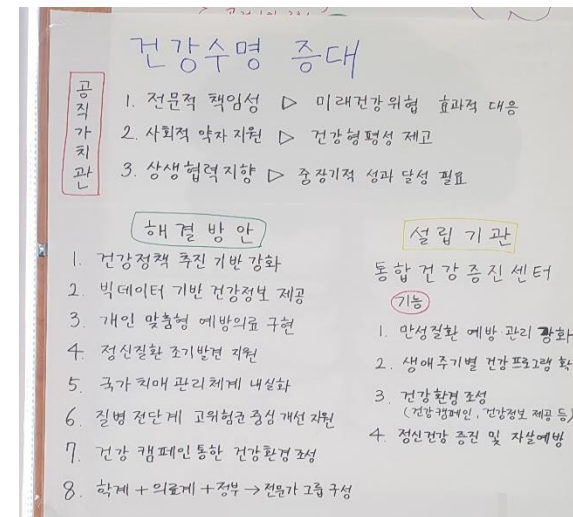 건강수명 증대
공직가치관
1. 전문적 책임성 ▷ 미래건강위협 효과적 대응
2. 사회적 약자 지원 ▷ 건강형평성 제고
3. 상생협력지향 ▷ 중장기적 성과 달성 필요
해결방안
1. 건강정책 추진 기반 강화
2. 빅데이터 기반 건강정보 제공
3. 개인 맞춤형 예방의료 구현
4. 정신질환 조기발견 지원
5. 국가치매관리체계 내실화
6. 질병 전단계 고위험군 중심 개선 지원
7. 건강 캠페인 통한 건강환경 조성
8. 학계 + 의료계 + 정부 → 전문가 그룹 구성
설립기관
통합건강증진센터
기능
1. 만성질환 예방·관리 강화
2. 생애주기별 건강프로그램 확
3. 건강환경 조성
(건강캠페인, 건강정보 제공 등)
4. 정신건강 증진 및 자살예방